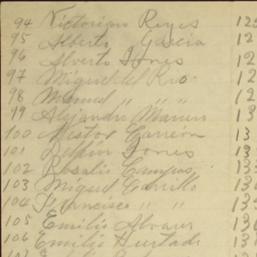 94 Victoriano Reyes 12
95 Alberto Garcia 12
96 Alverto Torres 12
97 Miguel del Rio 12
98 Manuel " " " 12
99 Alejandro 13
100 Nestor Carreon 13
101 Torres 13
102 Rosalio Campos 13
103 Miguel Carrillo 13
104 Francisco " " 13
105 Emilio Alvarez 13
106 Emilio Hurtado 13